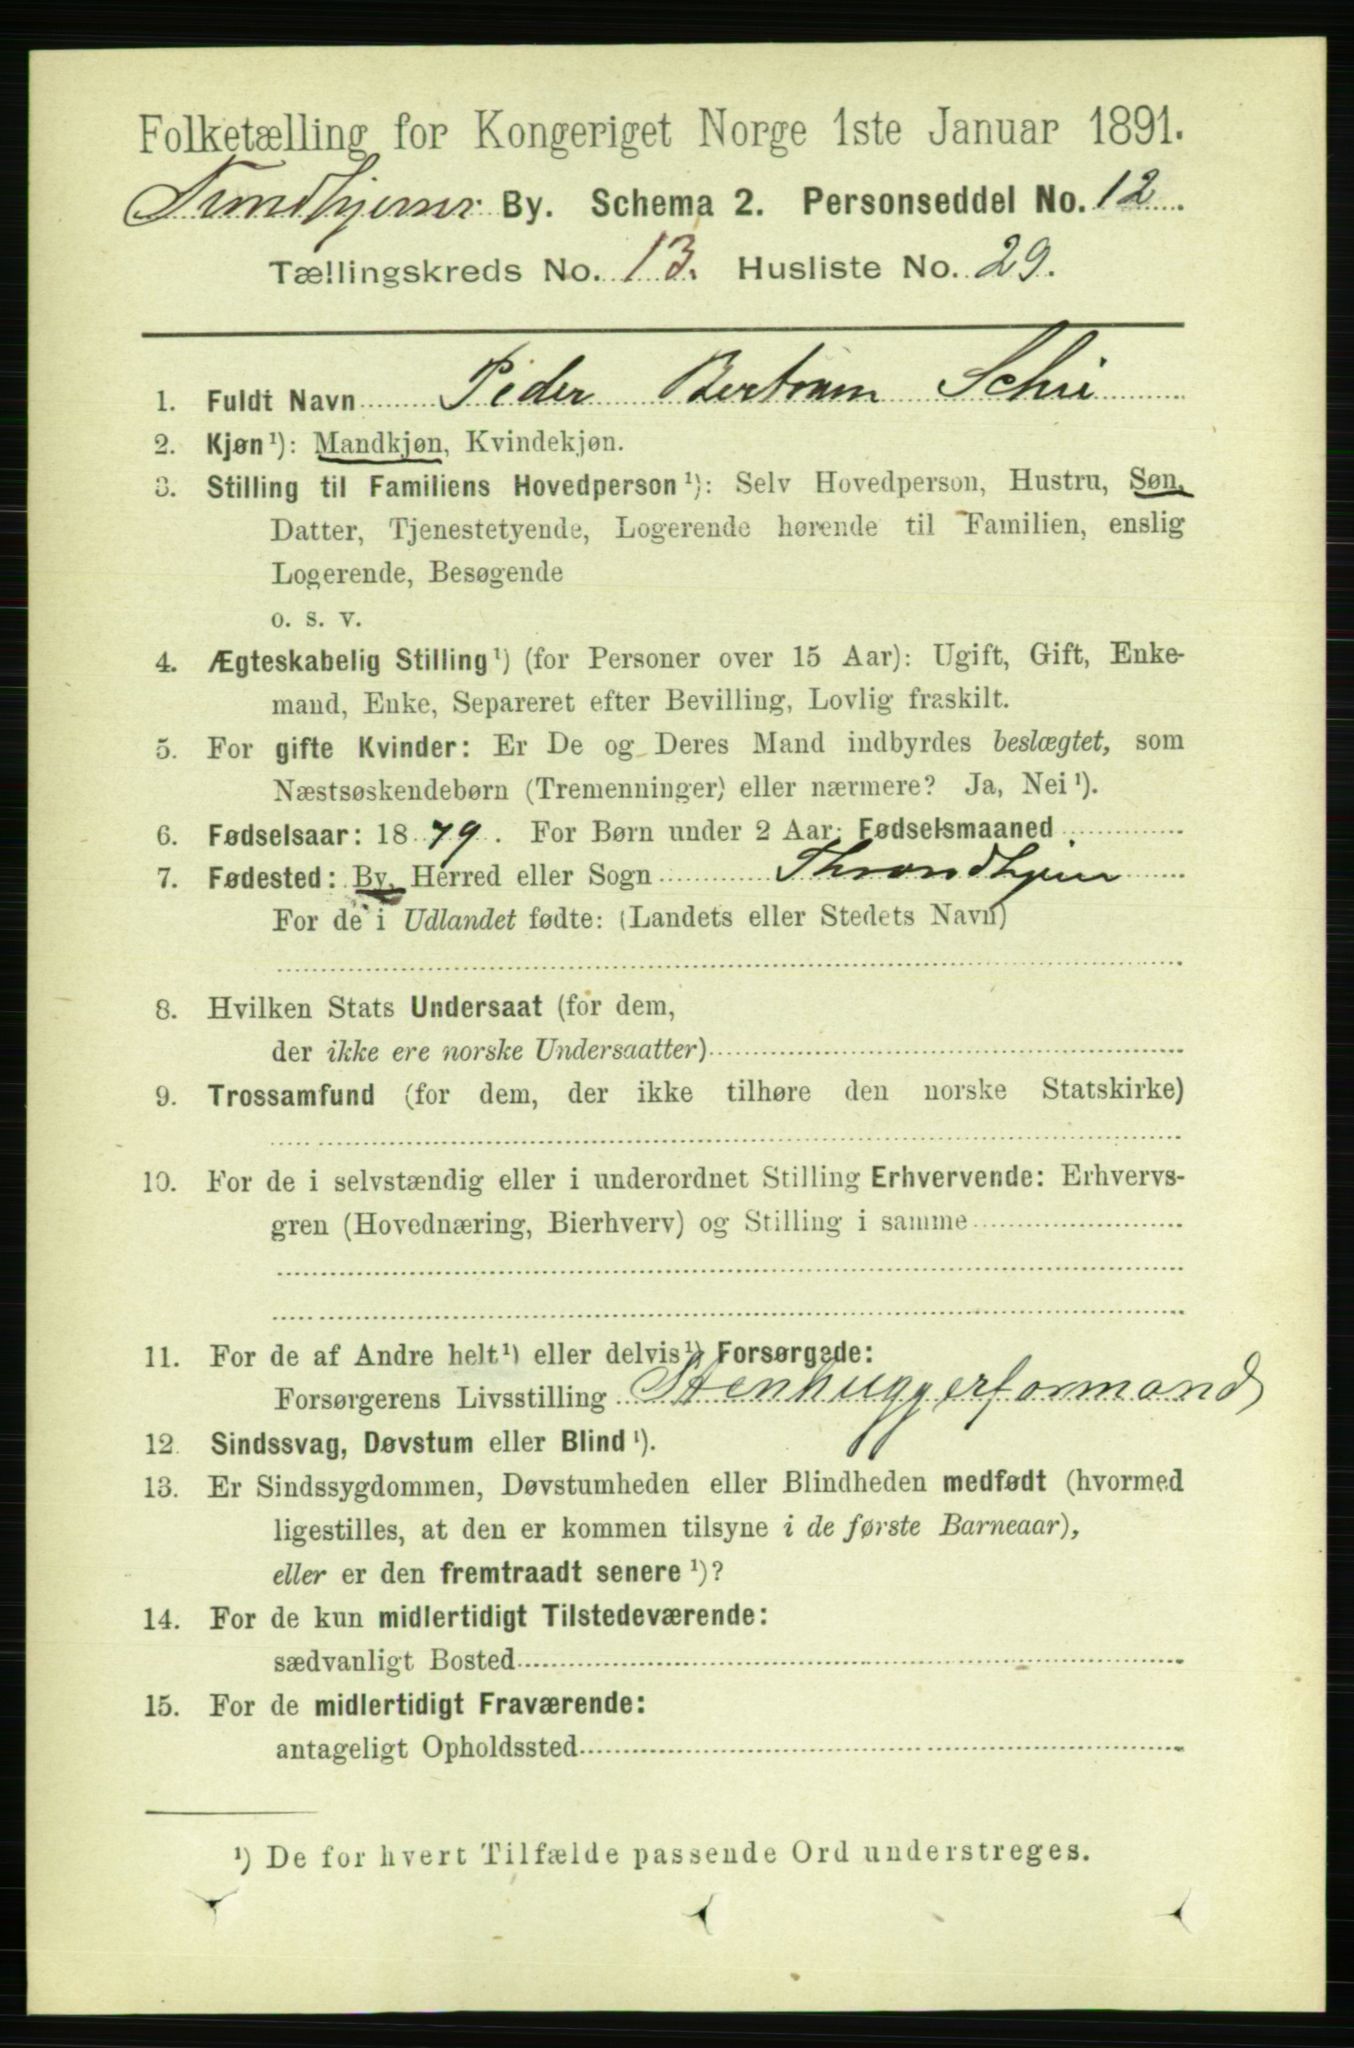 Folketælling for Kongeriget Norge 1ste Januar 1891.
Trondhjems By. Schema 2. Personseddel No. 12.
Tællingskreds No. 13. Husliste No. 29.
1. Fuldt Navn Peder Bertram Schie
2. Kjøn¹): Mandkjøn, Kvindekjøn.
3. Stilling til Familiens Hovedperson¹): Selv Hovedperson, Hustru, Søn,
Datter, Tjenestetyende, Logerende hørende til Familien, enslig
Logerende, Besøgende
o. s. v.
4. Ægteskabelig Stilling¹) (for Personer over 15 Aar): Ugift, Gift, Enke-
mand, Enke, Separeret efter Bevilling, Lovlig fraskilt.
5. For gifte Kvinder: Er De og Deres Mand indbyrdes beslægtet, som
Næstsøskendebørn (Tremenninger) eller nærmere? Ja, Nei¹).
6. Fødselsaar: 1879. For Børn under 2 Aar: Fødselsmaaned
7. Fødested: By, Herred eller Sogn Throndhjem
For de i Udlandet fødte: (Landets eller Stedets Navn)
8. Hvilken Stats Undersaat (for dem,
der ikke ere norske Undersaatter)
9. Trossamfund (for dem, der ikke tilhøre den norske Statskirke)
10. For de i selvstændig eller i underordnet Stilling Erhvervende: Erhvervs-
gren (Hovednæring, Bierhverv) og Stilling i samme
11. For de af Andre helt¹) eller delvis¹) Forsørgede:
Forsørgerens Livsstilling Stenhuggerformand
12. Sindssvag, Døvstum eller Blind¹).
13. Er Sindssygdommen, Døvstumheden eller Blindheden medfødt (hvormed
ligestilles, at den er kommen tilsyne i de første Barneaar),
eller er den fremtraadt senere¹)?
14. For de kun midlertidigt Tilstedeværende:
sædvanligt Bosted
15. For de midlertidigt Fraværende:
antageligt Opholdssted
¹) De for hvert Tilfælde passende Ord understreges.